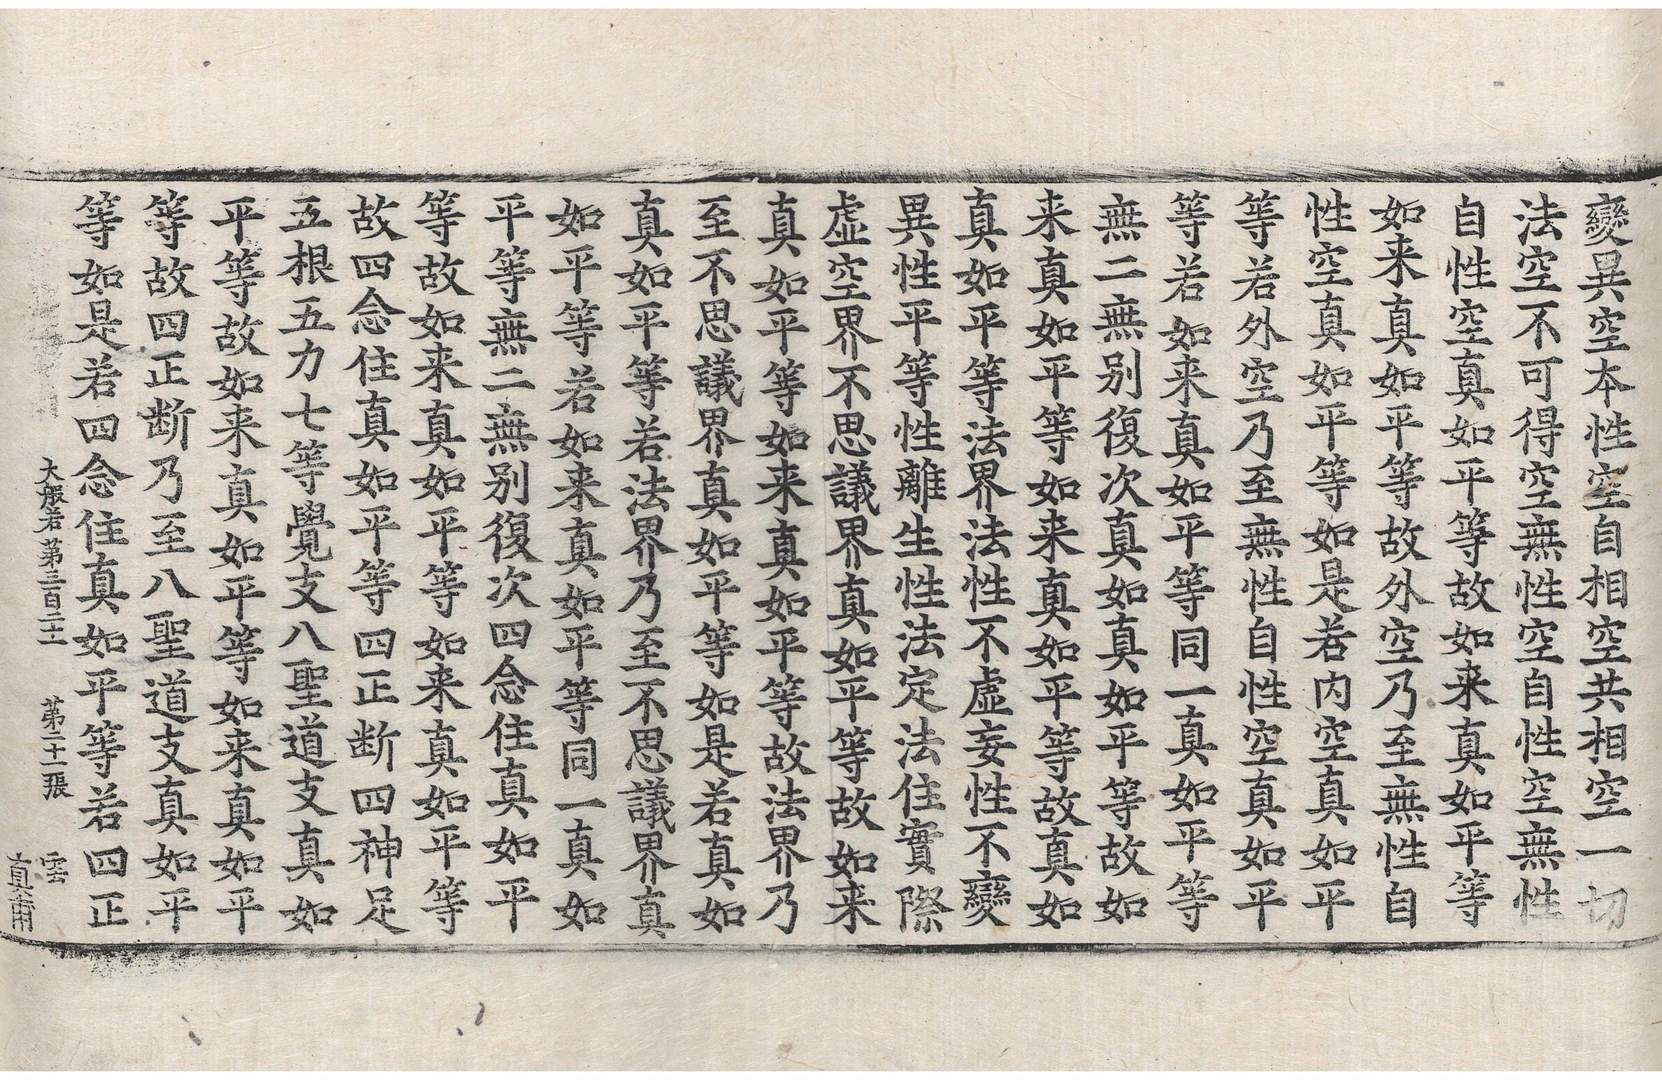 變異空本性空自相空共相空一切
法空不可得空無性空自性空無性
自性空真如平等故如来真如平等
如来真如平等故外空乃至無性自
性空真如平等如是若内空真如平
等若外空乃至無性自性空真如平
等若如来真如平等同一真如平等
無二無别復次真如真如平等故如
来真如平等如来真如平等故真如
真如平等法界法性不虛妄性不變
異性平等性離生性法定法住實際
虛空界不思議界真如平等故如来
真如平等如来真如平等故法界乃
至不思議界真如平等如是若真如
真如平等若法界乃至不思議界真
如平等若如来真如平等同一真如
平等無二無别復次四念住真如平
等故如来真如平等如来真如平等
故四念住真如平等四正断四神足
五根五力七等覺支八聖道支真如
平等故如来真如平等如来真如平
等故四正断乃至八聖道支真如平
等如是若四念住真如平等若四正
大般若第三百二十一 第二十一張 雲
真甫